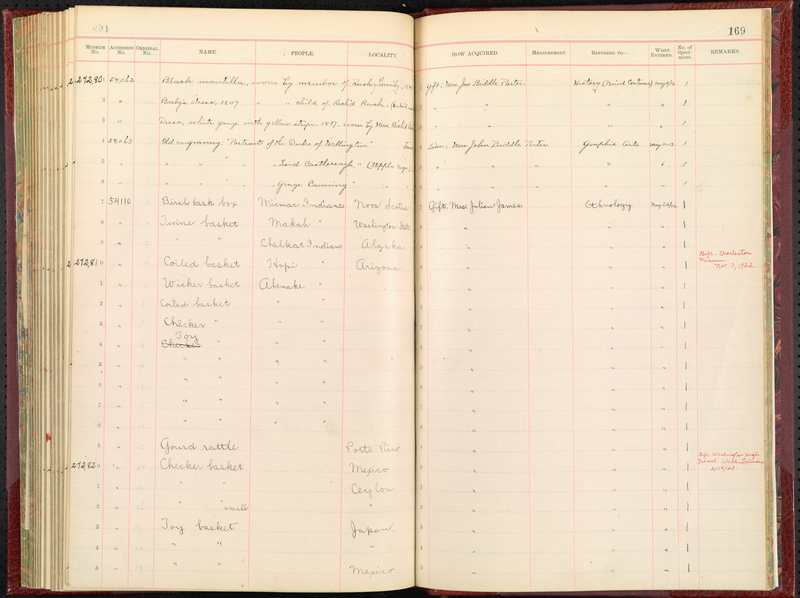 169
MUSEUM No. ACCESSION No. ORIGINAL No. NAME. PEOPLE LOCALITY HOW ACQUIRED. MEASUREMENT. REFERRED TO— WHEN ENTERED. No. of Specimens. REMARKS.
272,801 Black mantilla, worn by member of Rush family, Gift: Mrs. Jno Biddle Porter. History (Period Costumes) 1
2 " Baby's dress, 1809 " " child of Rich'd Rush. " " " " 1
3 " Dress, white gauze with yellow stripe. 1817. worn by Mrs. " " " " 1
4 54,063 Old engraving: "Portrait of the Duke of Wellington" Loan: Mrs John Biddle Porter. Graphic Arts 1
5 " " " " " Lord Castlereagh " " " " " 1
6 " " " " " George Canning " " " " " 1
7 54110 Birch bark box Micmac Indians Nova Scotia Gift. Mrs. Julian James. Ethnology. 1
8 " Twine basket Makah " Washington State " " " 1
9 " " " Chilkat Indians Alaska " " " 1
272,810 " Coiled basket Hopi " Arizona " " " 1 Nov. 7, 1922
1 " Wicker basket Abenake " " " " 1
2 " Coiled basket " " " " " 1
3 " Checker " " " " " " 1
4 " Toy
Checker " " " " " " 1
5 " " " " " " " " 1
6 " " " " " " " " 1
7 " " " " " " " " 1
8 " " " " " " " " 1
9 " Gourd rattle Porto Rico " " " 1
272,820 " Checker basket Mexico " " " 1 Washington High School
1 " " " Ceylon " " " 1
2 " " " small " " " " 1
3 " Toy basket Japan. " " " 1
4 " " " " " " " 1
5 " " " Mexico " " " 1